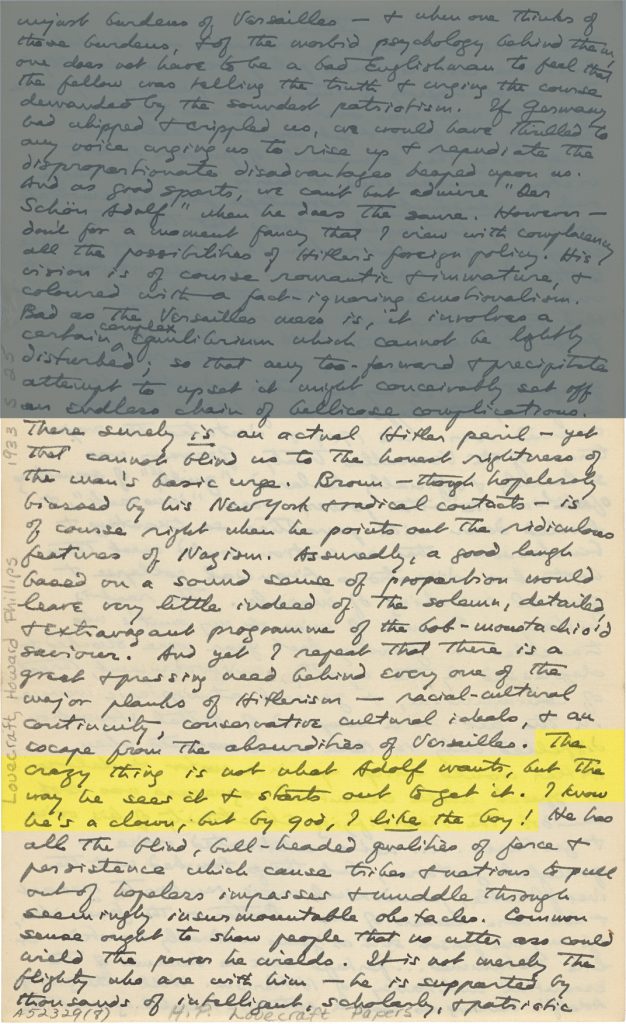 unjust burdens of Versailles — & when one thinks of
those burdens, & of the morbid psychology behind them,
one does not have to be a bad Englishman to feel that
the fellow was telling the truth & urging the course
demanded by the soundest patriotism. If Germany
had whipped & crippled us, we would have thrilled to
any voice urging us to rise up & repudiate the
disproportionate disadvantages heaped upon us.
And as good sports, we can't but admire "Der
Schön Adolf" when he does the same. However —
don't for a moment fancy that I view with complacency
all the possibilities of Hitler's foreign policy. His
vision is of course romantic & immature, &
coloured with a fact-ignoring emotionalism.
Bad as the Versailles mess is, it involves a
certain complex equilibrium which cannot be lightly
disturbed; so that any too-forward & precipitate
attempt to upset it might conceivably set off
an endless chain of bellicose complications.
There surely is an actual Hitler peril — yet
that cannot blind us to the honest rightness of
the man's basic urge. Brown — though hopelessly
biassed by his New York & radical contacts — is
of course right when he points out the ridiculous
features of Nazism. Assuredly, a good laugh
based on a sound sense of proportion would
leave very little indeed of the solemn, detailed,
& extravagant programme of the bob-moustachio'd
saviour. And yet I repeat that there is a
great & pressing need behind every one of the
major planks of Hitlerism — racial-cultural
continuity, conservative cultural ideals, & an
escape from the absurdities of Versailles. The
crazy thing is not what Adolf wants, but the
way he sees it & starts out to get it. I know
he's a clown, but by god, I like the boy! He has
all the blind, bull-headed qualities of force &
persistence which cause tribes & nations to pull
out of hopeless impasses & muddle through
seemingly insurmountable obstacles. Common
sense ought to show people that no utter ass could
wield the power he wields. It is not merely the
flighty who are with him — he is supported by
thousands of intelligent, scholarly, & patriotic
A52329(7) H.P. Lovecraft Papers
Lovecraft, Howard Phillips 1933 5 25